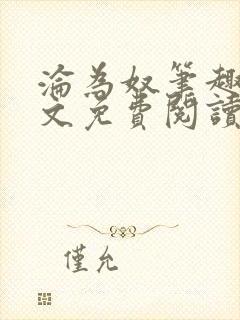 淪為奴筆趣
文免費閱讀
僅允